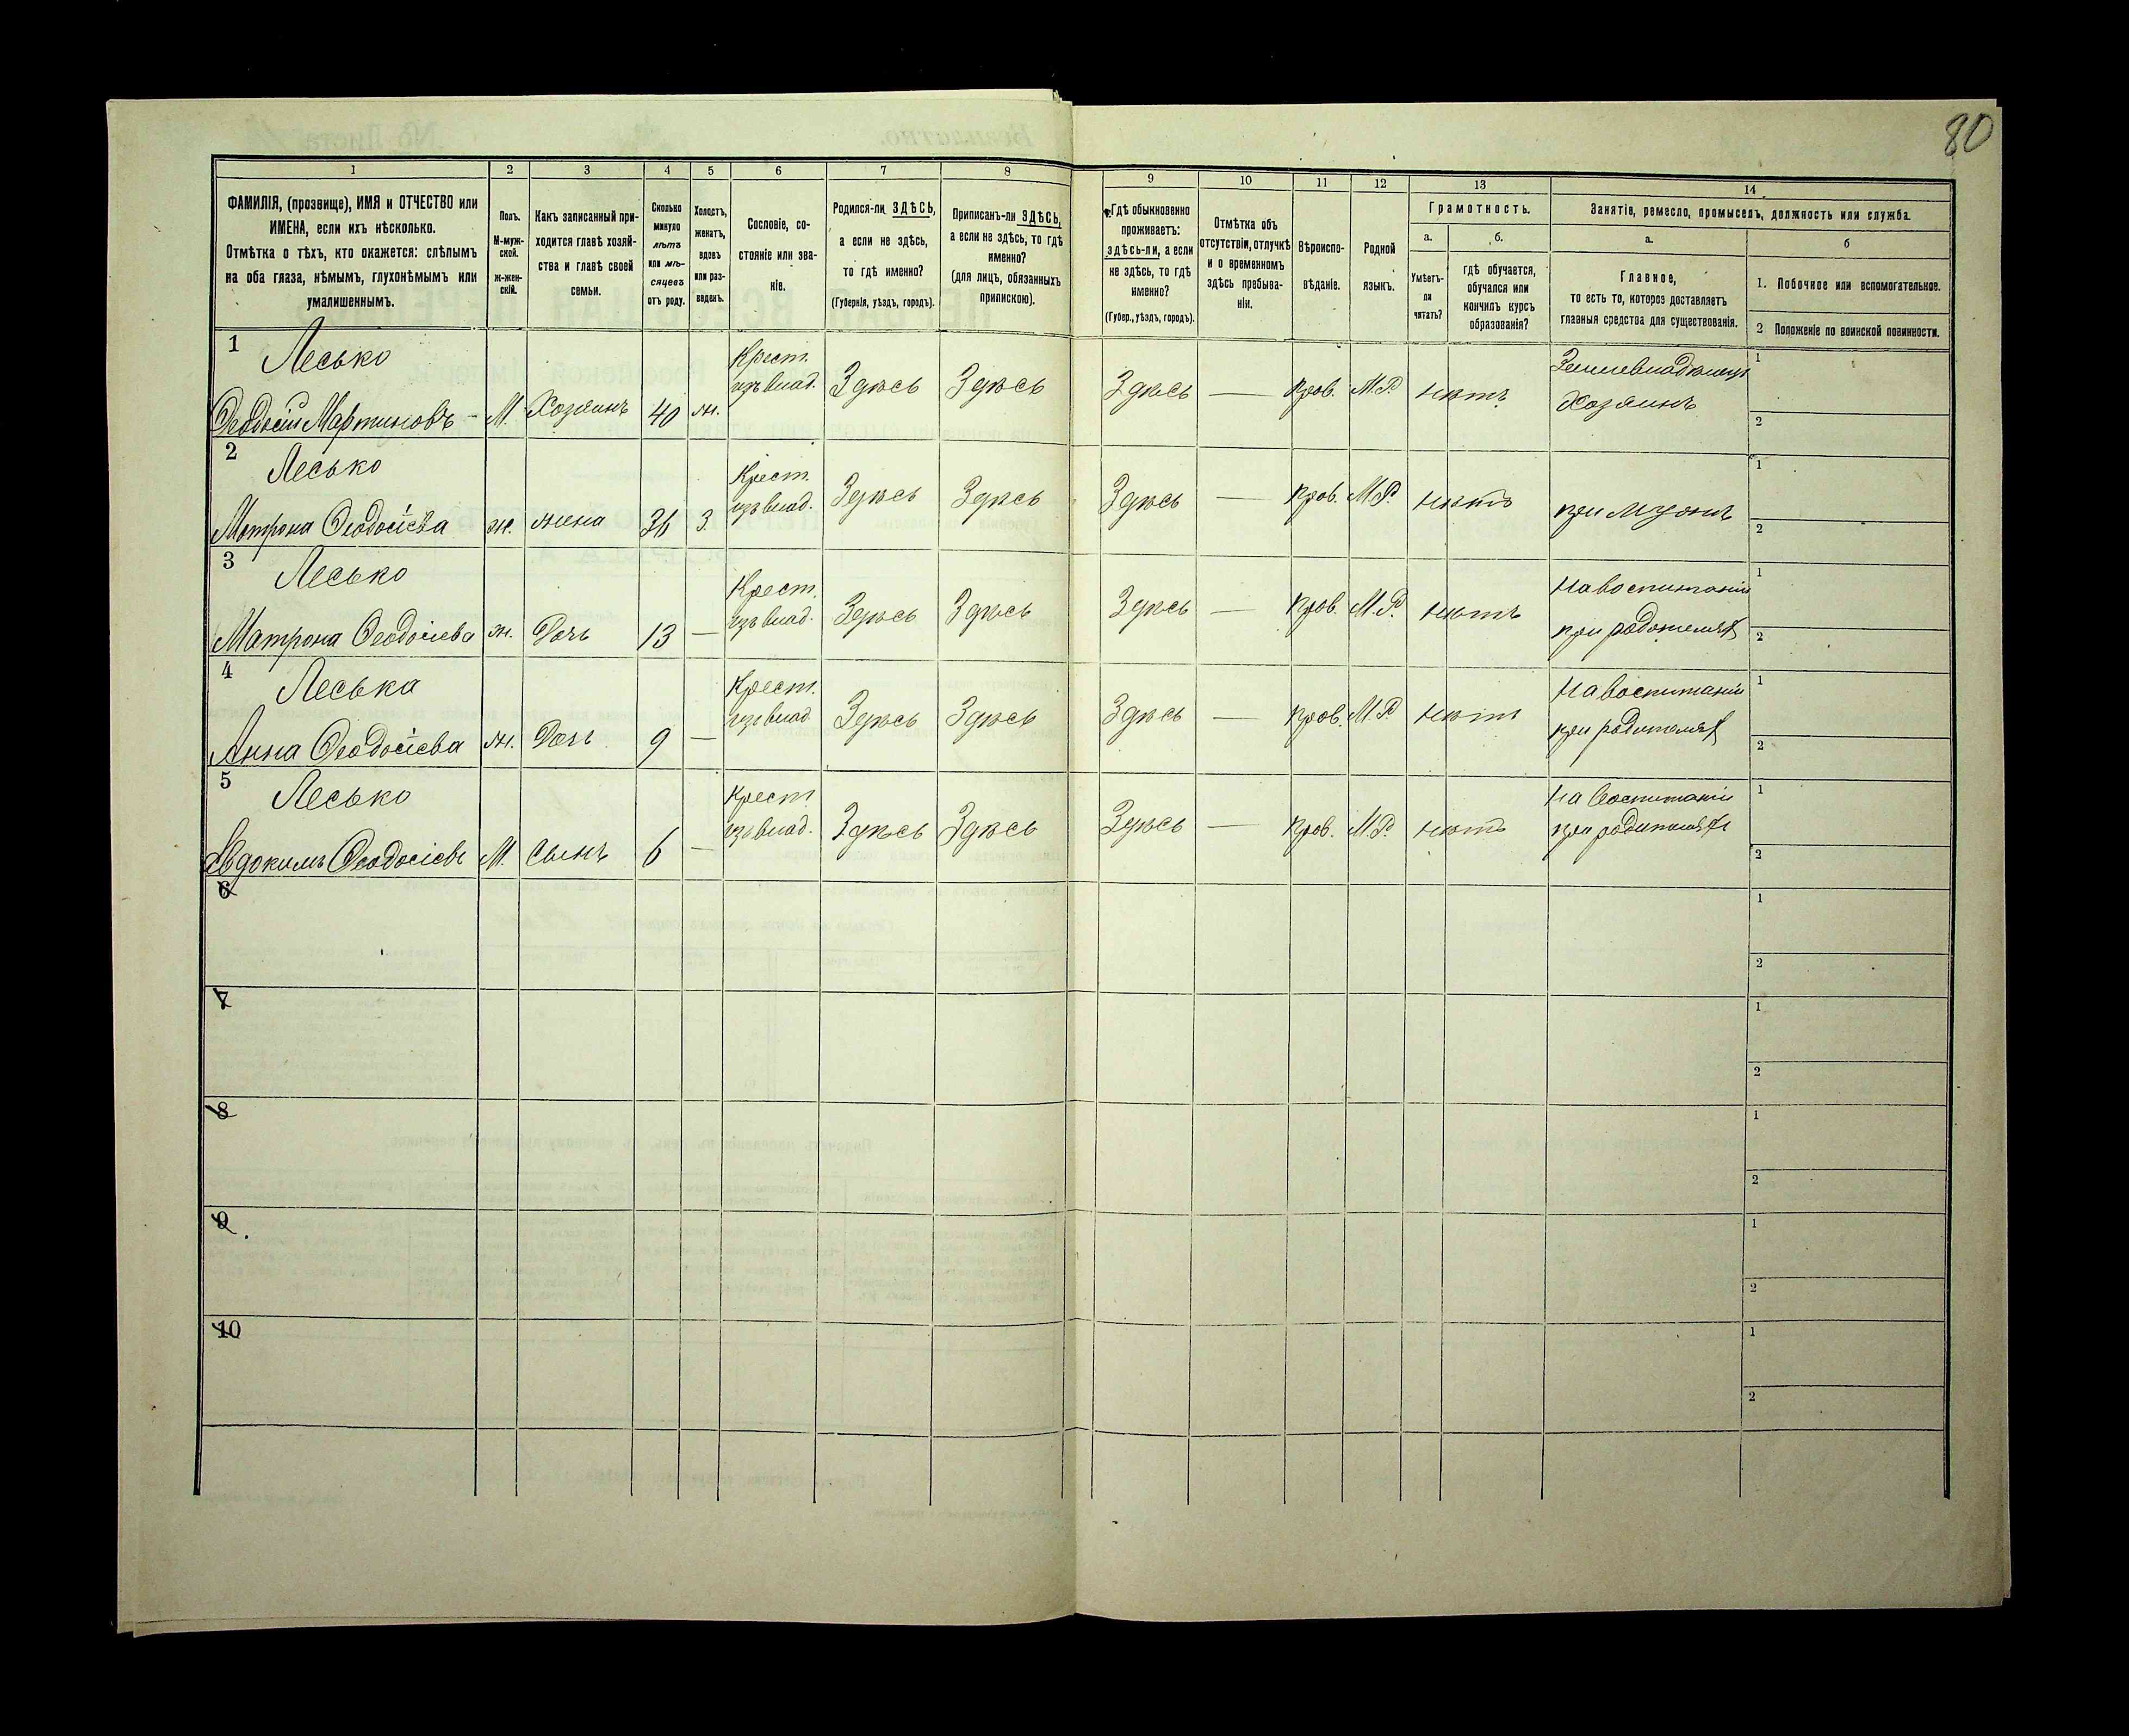 80
1 2 3 4 5 6 7 8 9 10 11 12 13 14
ФАМИЛІЯ, (прозвище), ИМЯ и ОТЧЕСТВО или
ИМЕНА, если ихъ нѣсколько.
Отмѣтка о тѣхъ, кто окажется: слѣпымъ
на оба глаза, нѣмымъ, глухонѣмымъ или
умалишеннымъ.
Полъ.
М-муж-
ской.
ж-жен-
скій.
Какъ записанный при-
ходится главѣ хозяй-
ства и главѣ своей
семьи.
Сколько
минуло
лѣтъ
или мѣ-
сяцевъ
отъ роду.
Холостъ,
женатъ,
вдовъ
или раз-
веденъ.
Сословіе, со-
стояніе или зва-
ніе.
Родился-ли ЗДѢСЬ,
а если не здѣсь,
то гдѣ именно?
(Губернія, уѣздъ, городъ).
Приписанъ-ли ЗДѢСЬ,
а если не здѣсь, то гдѣ
именно?
(для лицъ, обязанныхъ
припискою).
Гдѣ обыкновенно
проживаетъ:
здѣсь-ли, а если
не здѣсь, то гдѣ
именно?
(Губер., уѣздъ, городъ).
Отмѣтка объ
отсутствіи, отлучкѣ
и о временномъ
здѣсь пребыва-
ніи.
Вѣроиспо-
вѣданіе.
Родной
языкъ.
Грамотность.
а.
Умѣетъ-
ли
читать?
б.
гдѣ обучается,
обучался или
кончилъ курсъ
образованія?
Занятіе, ремесло, промыселъ, должность или служба.
а.
Главное,
то есть то, которое доставляетъ
главныя средства для существованія.
б
1. Побочное или вспомогательное.
2 Положеніе по воинской повинности.
1 Лесько Крест. Землевладѣлецъ 1
изъ влад. Здѣсь Здѣсь Здѣсь — Прав. М.Р. нѣтъ
Ѳеодосій Мартиновъ М. Хозяинъ 40 ж. Хозяинъ 2
2 Лесько Крест. 1
изъ влад. Здѣсь Здѣсь Здѣсь — Прав. М.Р. нѣтъ
Матрона Ѳеодосіева ж. жена 36 З. при мужѣ 2
3 Лесько Крест. На воспитаніи 1
изъ влад. Здѣсь Здѣсь Здѣсь — Прав. М.Р. нѣтъ
Матрона Ѳеодосіева ж. Дочь 13 — при родителях 2
4 Леська Крест. На воспитаніи 1
изъ влад. Здѣсь Здѣсь Здѣсь — Прав. М.Р. нѣтъ
Анна Ѳеодосіева ж. Дочь 9 — при родителях 2
5 Лесько Крест. На воспитаніи 1
изъ влад. Здѣсь Здѣсь Здѣсь — Прав. М.Р. нѣтъ при родителях
Евдокимъ Ѳеодосіевъ М. Сынъ 6 — 2
6 1
2
7 1
2
8 1
2
9 1
2
10 1
2